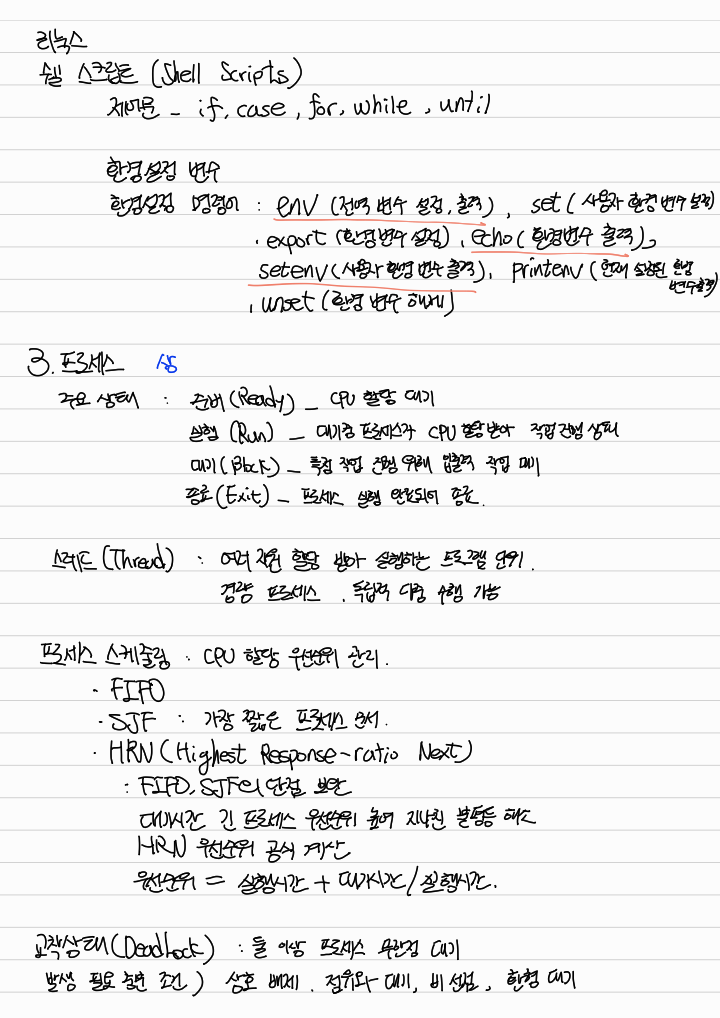 리눅스
쉘 스크립트 (Shell Scripts)
제어문 - if, case, for, while, until
환경설정 변수
환경설정 명령어 : env (전역 변수 설정, 출력), set (사용자 환경 변수 설정)
, export (환경변수 설정), echo (환경변수 출력),
setenv (사용자 환경 변수 출력), printenv (현재 설정된 환경
변수 출력)
, unset (환경 변수 해제)
3. 프로세스 상
주요 상태 : 준비 (Ready) - CPU 할당 대기
실행 (Run) - 대기중 프로세스가 CPU 할당 받아 직접 진행 상태
대기 (Block) - 특정 작업 진행 위해 입출력 작업 대기
종료 (Exit) - 프로세스 실행 완료되어 종료.
스레드 (Thread) : 여러 자원 할당 받아 실행하는 프로그램 단위.
경량 프로세스. 독립적 다중 수행 가능
프로세스 스케줄링 : CPU 할당 우선순위 관리.
· FIFO
· SJF : 가장 짧은 프로세스 순서.
· HRN (Highest Response-ratio Next)
: FIFO, SJF의 단점 보완
대기시간 긴 프로세스 우선순위 높여 지나친 불평등 해소
HRN 우선순위 공식 계산
우선순위 = 실행시간 + 대기시간 / 실행시간.
교착상태 (DeadLock) : 둘 이상 프로세스 무한정 대기
발생 필요 충분 조건) 상호 배제. 점유와 대기, 비 선점, 환형 대기